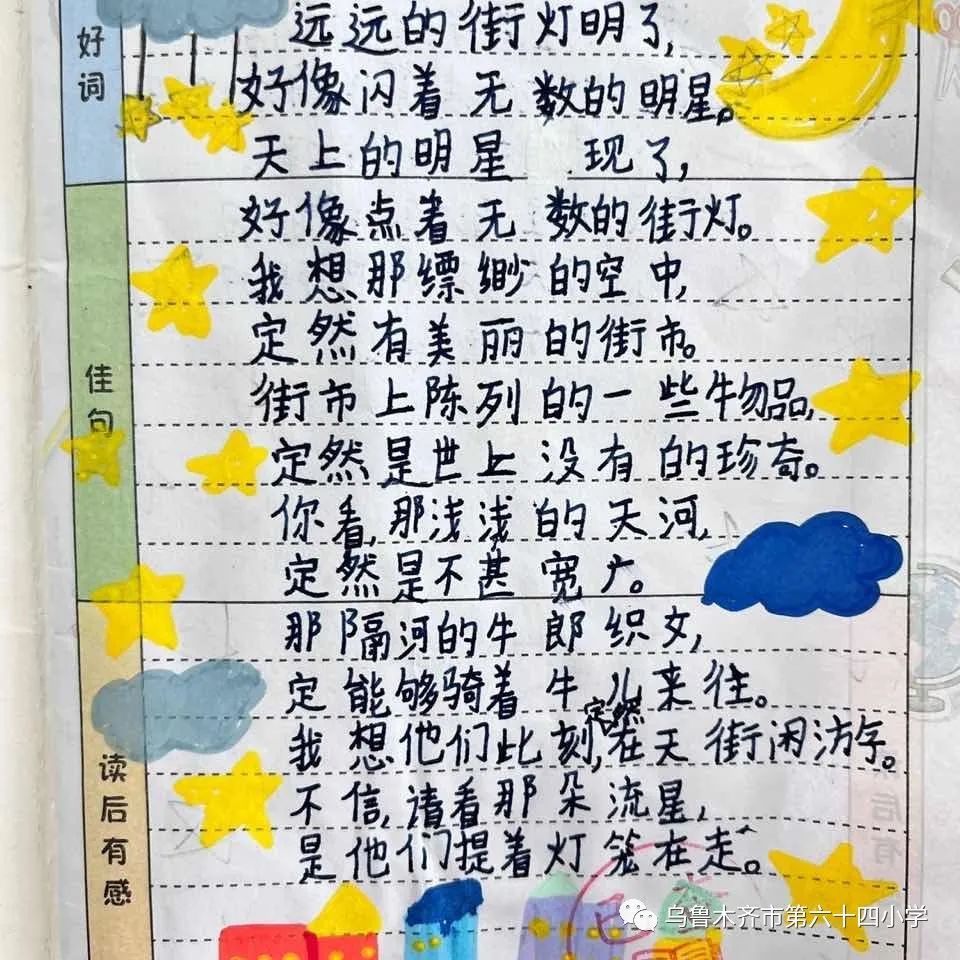 好词
远远的街灯明了，
好像闪着无数的明星。
天上的明星 现了，
好像点着无数的街灯。
我想那缥缈的空中，
定然有美丽的街市。
佳句
街市上陈列的一些物品，
定然是世上没有的珍奇。
你看，那浅浅的天河，
定然是不甚宽广。
那隔河的牛郎织女，
定能够骑着牛儿来往。
我想他们此刻，定然在天街闲游。
读后有感
不信，请看那朵流星，
是他们提着灯笼在走。
乌鲁木齐市第六十四小学